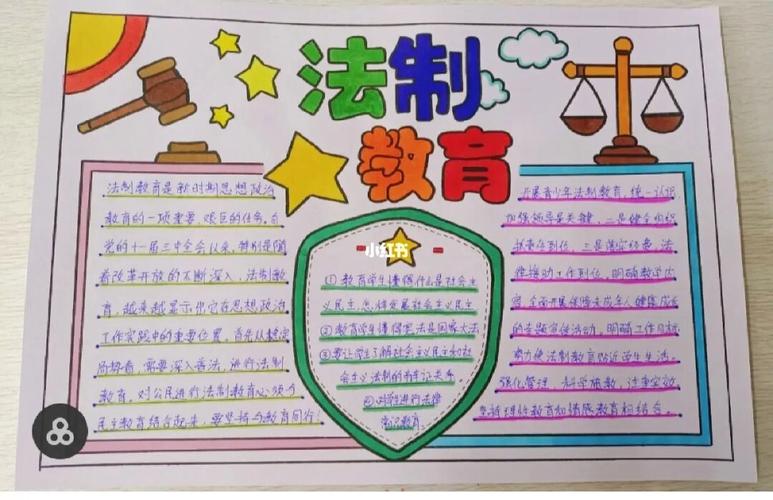 法制
教育
法制教育是新时期思想政治
教育的一项重要、艰巨的任务,自
党的十一届三中全会以来,特别是随
着改革开放的不断深入,法制教
育,越来越显示出它在思想政治
工作实践中的重要位置,首先从
局势看,需要深入普法,进行法制
教育,对公民进行法制教育必须今
民主教育结合起来,要坚持今教育同行!
小红书
①教育学生懂得什么是社会主
义民主,怎样发展社会主义民主
②教育学生懂得宪法是国家大法
③要让学生了解社会主义民主和社
会主义法制的辩证关系
④对学生进行法律
常识教育.
开展青少年法制教育,统一认识
加强领导是关键,二是健全组织
责任到位,三是落实经费,法
推动工作到位,明确教学内
容,全面开展保障未成年人健康成长
的专题宣传活动,明确工作目标
努力使法制教育贴近学生生活。
强化管理,科学施教,注重实效
坚持理性教育和情感教育相结合。